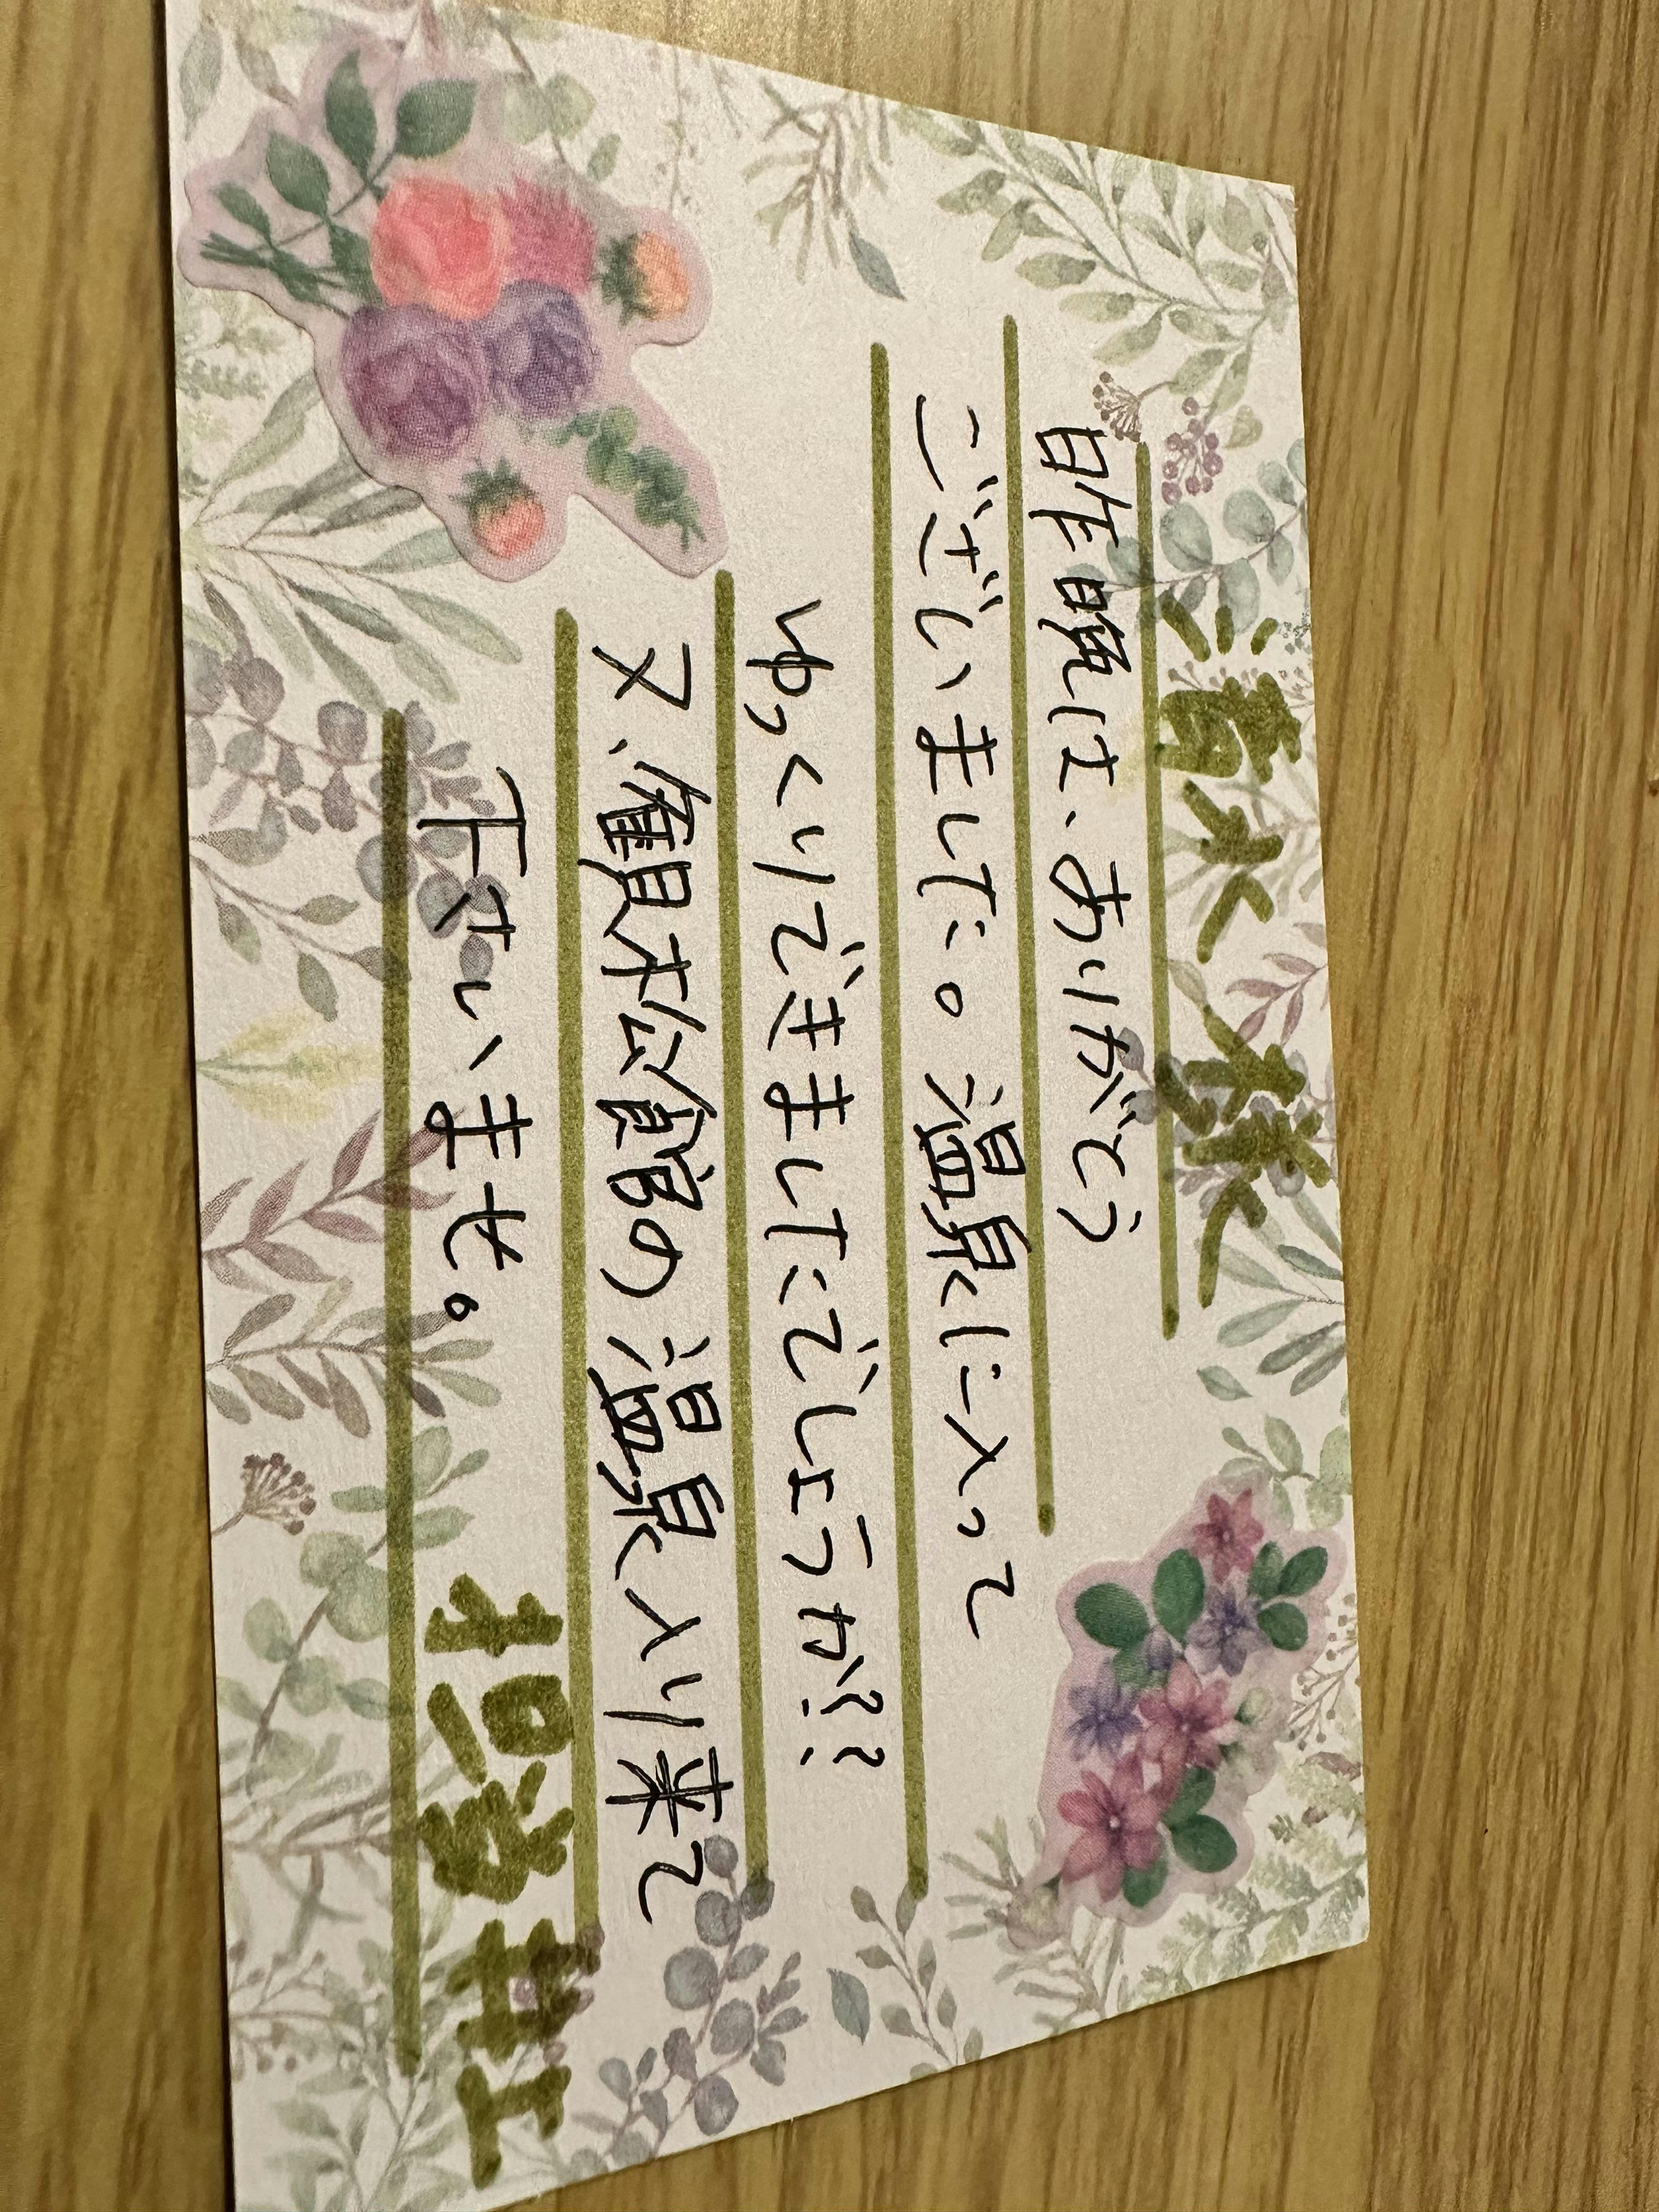 清水 様
昨晩は、ありがとう
ございました。温泉に入って
ゆっくりできましたでしょうか??
又、観松館の温泉入り来て
下さいませ。